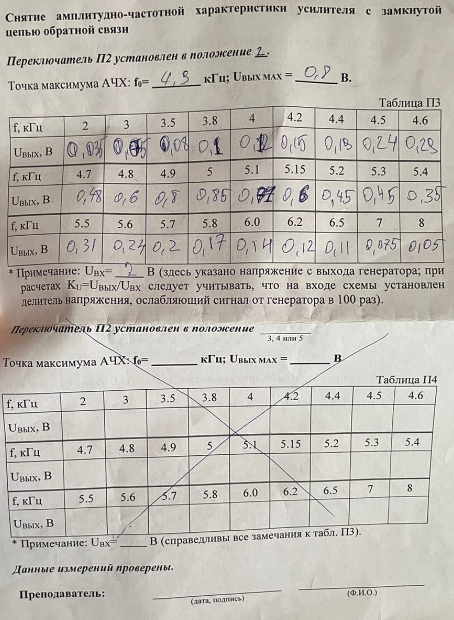 Снятие амплитудно-частотной характеристики усилителя с замкнутой
цепью обратной связи
Переключатель П2 установлен в положение 2.
Точка максимума АЧХ: f₀= 4,9 кГц; Uвых мах = 0,8 В.
Таблица П3
f, кГц 2 3 3.5 3.8 4 4.2 4.4 4.5 4.6
Uвых, В 0,035 0,08 0,1 0,12 0,15 0,19 0,24 0,29
4.7 4.8 4.9 5 5.1 5.15 5.2 5.3 5.4
Uвых, В 0,48 0,6 0,8 0,85 0,6 0,45 0,45 0,35
f, кГц 5.5 5.6 5.7 5.8 6.0 6.2 6.5 7 8
Uвых, В 0,31 0,24 0,2 0,17 0,14 0,12 0,11 0,075 0,05
* Примечание: Uвх= 2 В (здесь указано напряжение с выхода генератора; при
расчетах Ku=Uвых/Uвх следует учитывать, что на входе схемы установлен
делитель напряжения, ослабляющий сигнал от генератора в 100 раз).
Переключатель П2 установлен в положение
3, 4 или 5
Точка максимума АЧХ: f₀= кГц; Uвых мах = В
Таблица П4
f, кГц 2 3 3.5 3.8 4 4.2 4.4 4.5 4.6
Uвых, В
f, кГц 4.7 4.8 4.9 5 5.1 5.15 5.2 5.3 5.4
Uвых, В
f, кГц 5.5 5.6 5.7 5.8 6.0 6.2 6.5 7 8
Uвых, В
* Примечание: Uвх= В (справедливы все замечания к табл. П3).
Данные измерений проверены.
Преподаватель:
(дата, подпись) (Ф.И.О.)